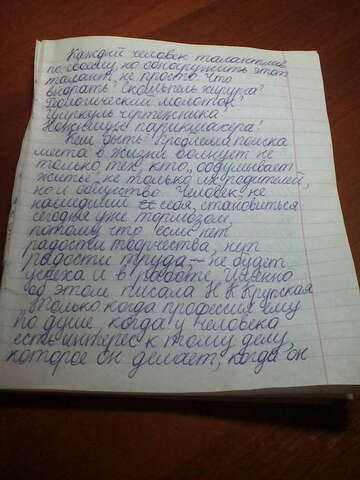 Каждый человек талантлив
по-своему, но обнаружить этот
талант не просто. Что
выбрать? Скальпель хирурга?
Геологический молоток?
Циркуль чертёжника
Ножницы парикмахера?
Кем быть? Проблема поиска
места в жизни волнует не
только тех, кто „обдумывает
житьё", не только их родителей,
но и общество. Человек, не
нашедший себя, становиться
сегодня уже тормозом,
потому что если нет
радости творчества, нет
радости труда – не будет
успеха и в работе. Именно
об этом писала Н К Крупская
„Только когда професия ему
по душе, когда у человека
есть интерес к тому делу,
которое он делает, когда он